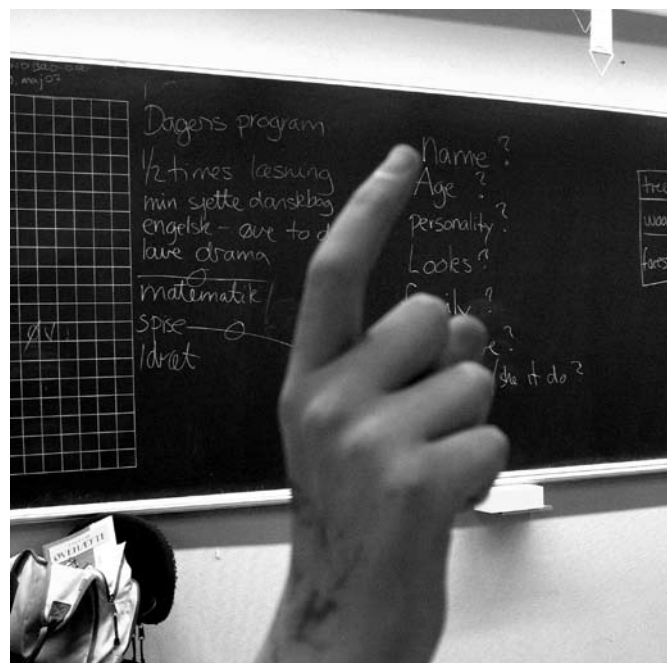 maj 07
Dagens program
1/2 times læsning
min sjette danskbog
engelsk - øve to
lave drama
matematik
spise
Idræt
Name ?
Age ?
personality ?
Looks ?
?
?
/she it do ?
ØV
ØVEHÆFTE